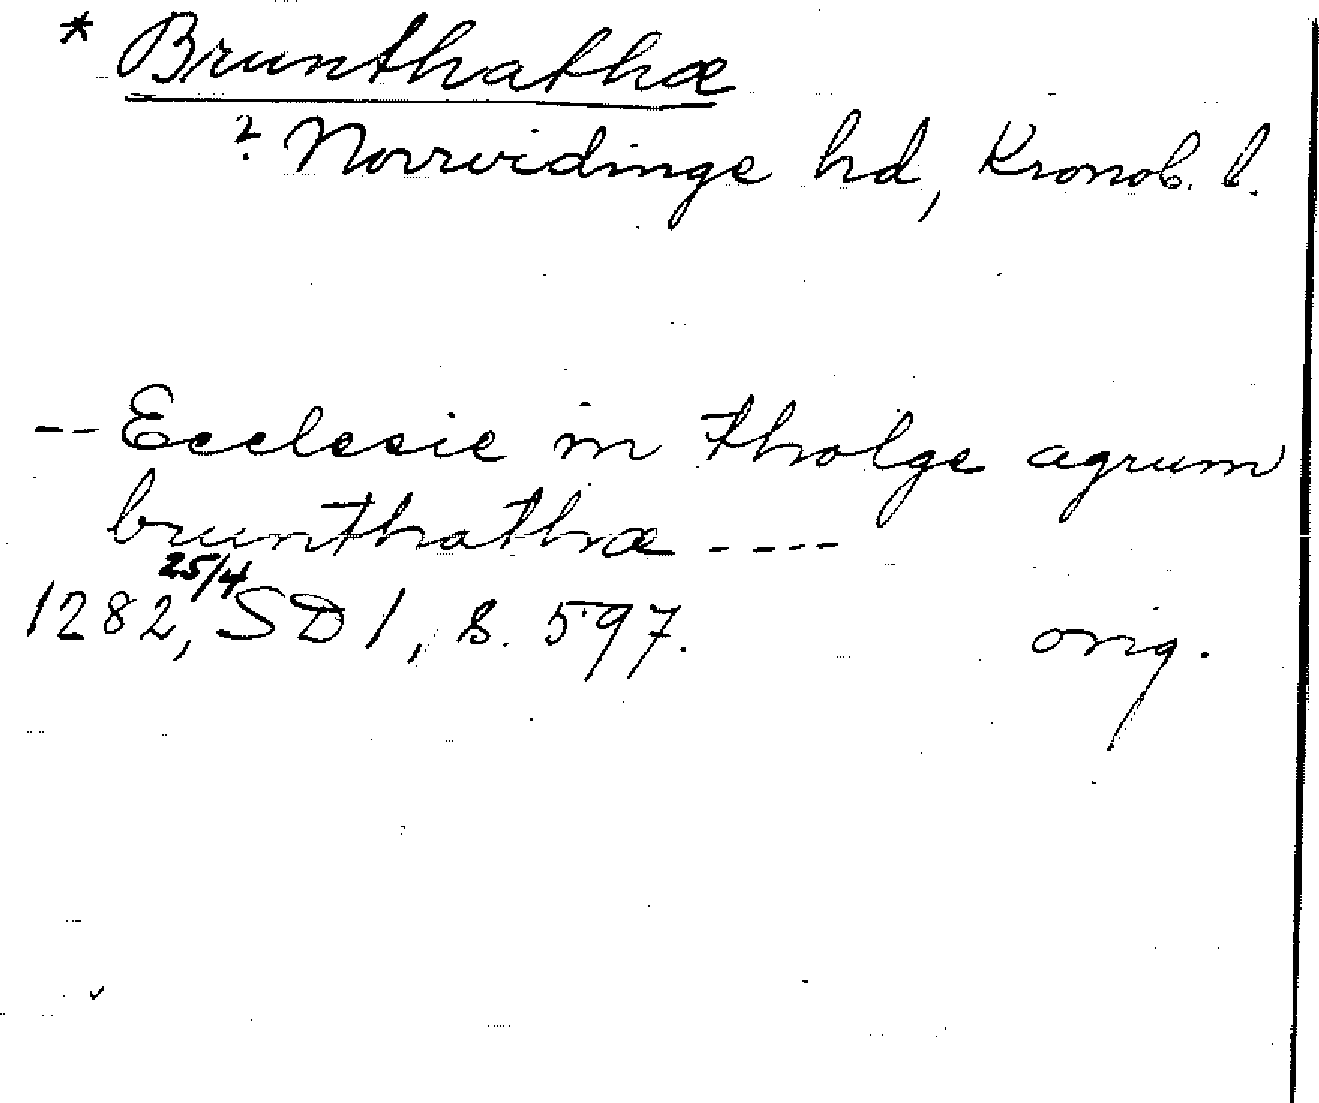 * Brunthathæ
? Norrvidinge hd, Kronob. l.
-- Ecclesie in tholge agrum
brunthathæ ----
1282, 25/4 SD 1, s. 597. orig.